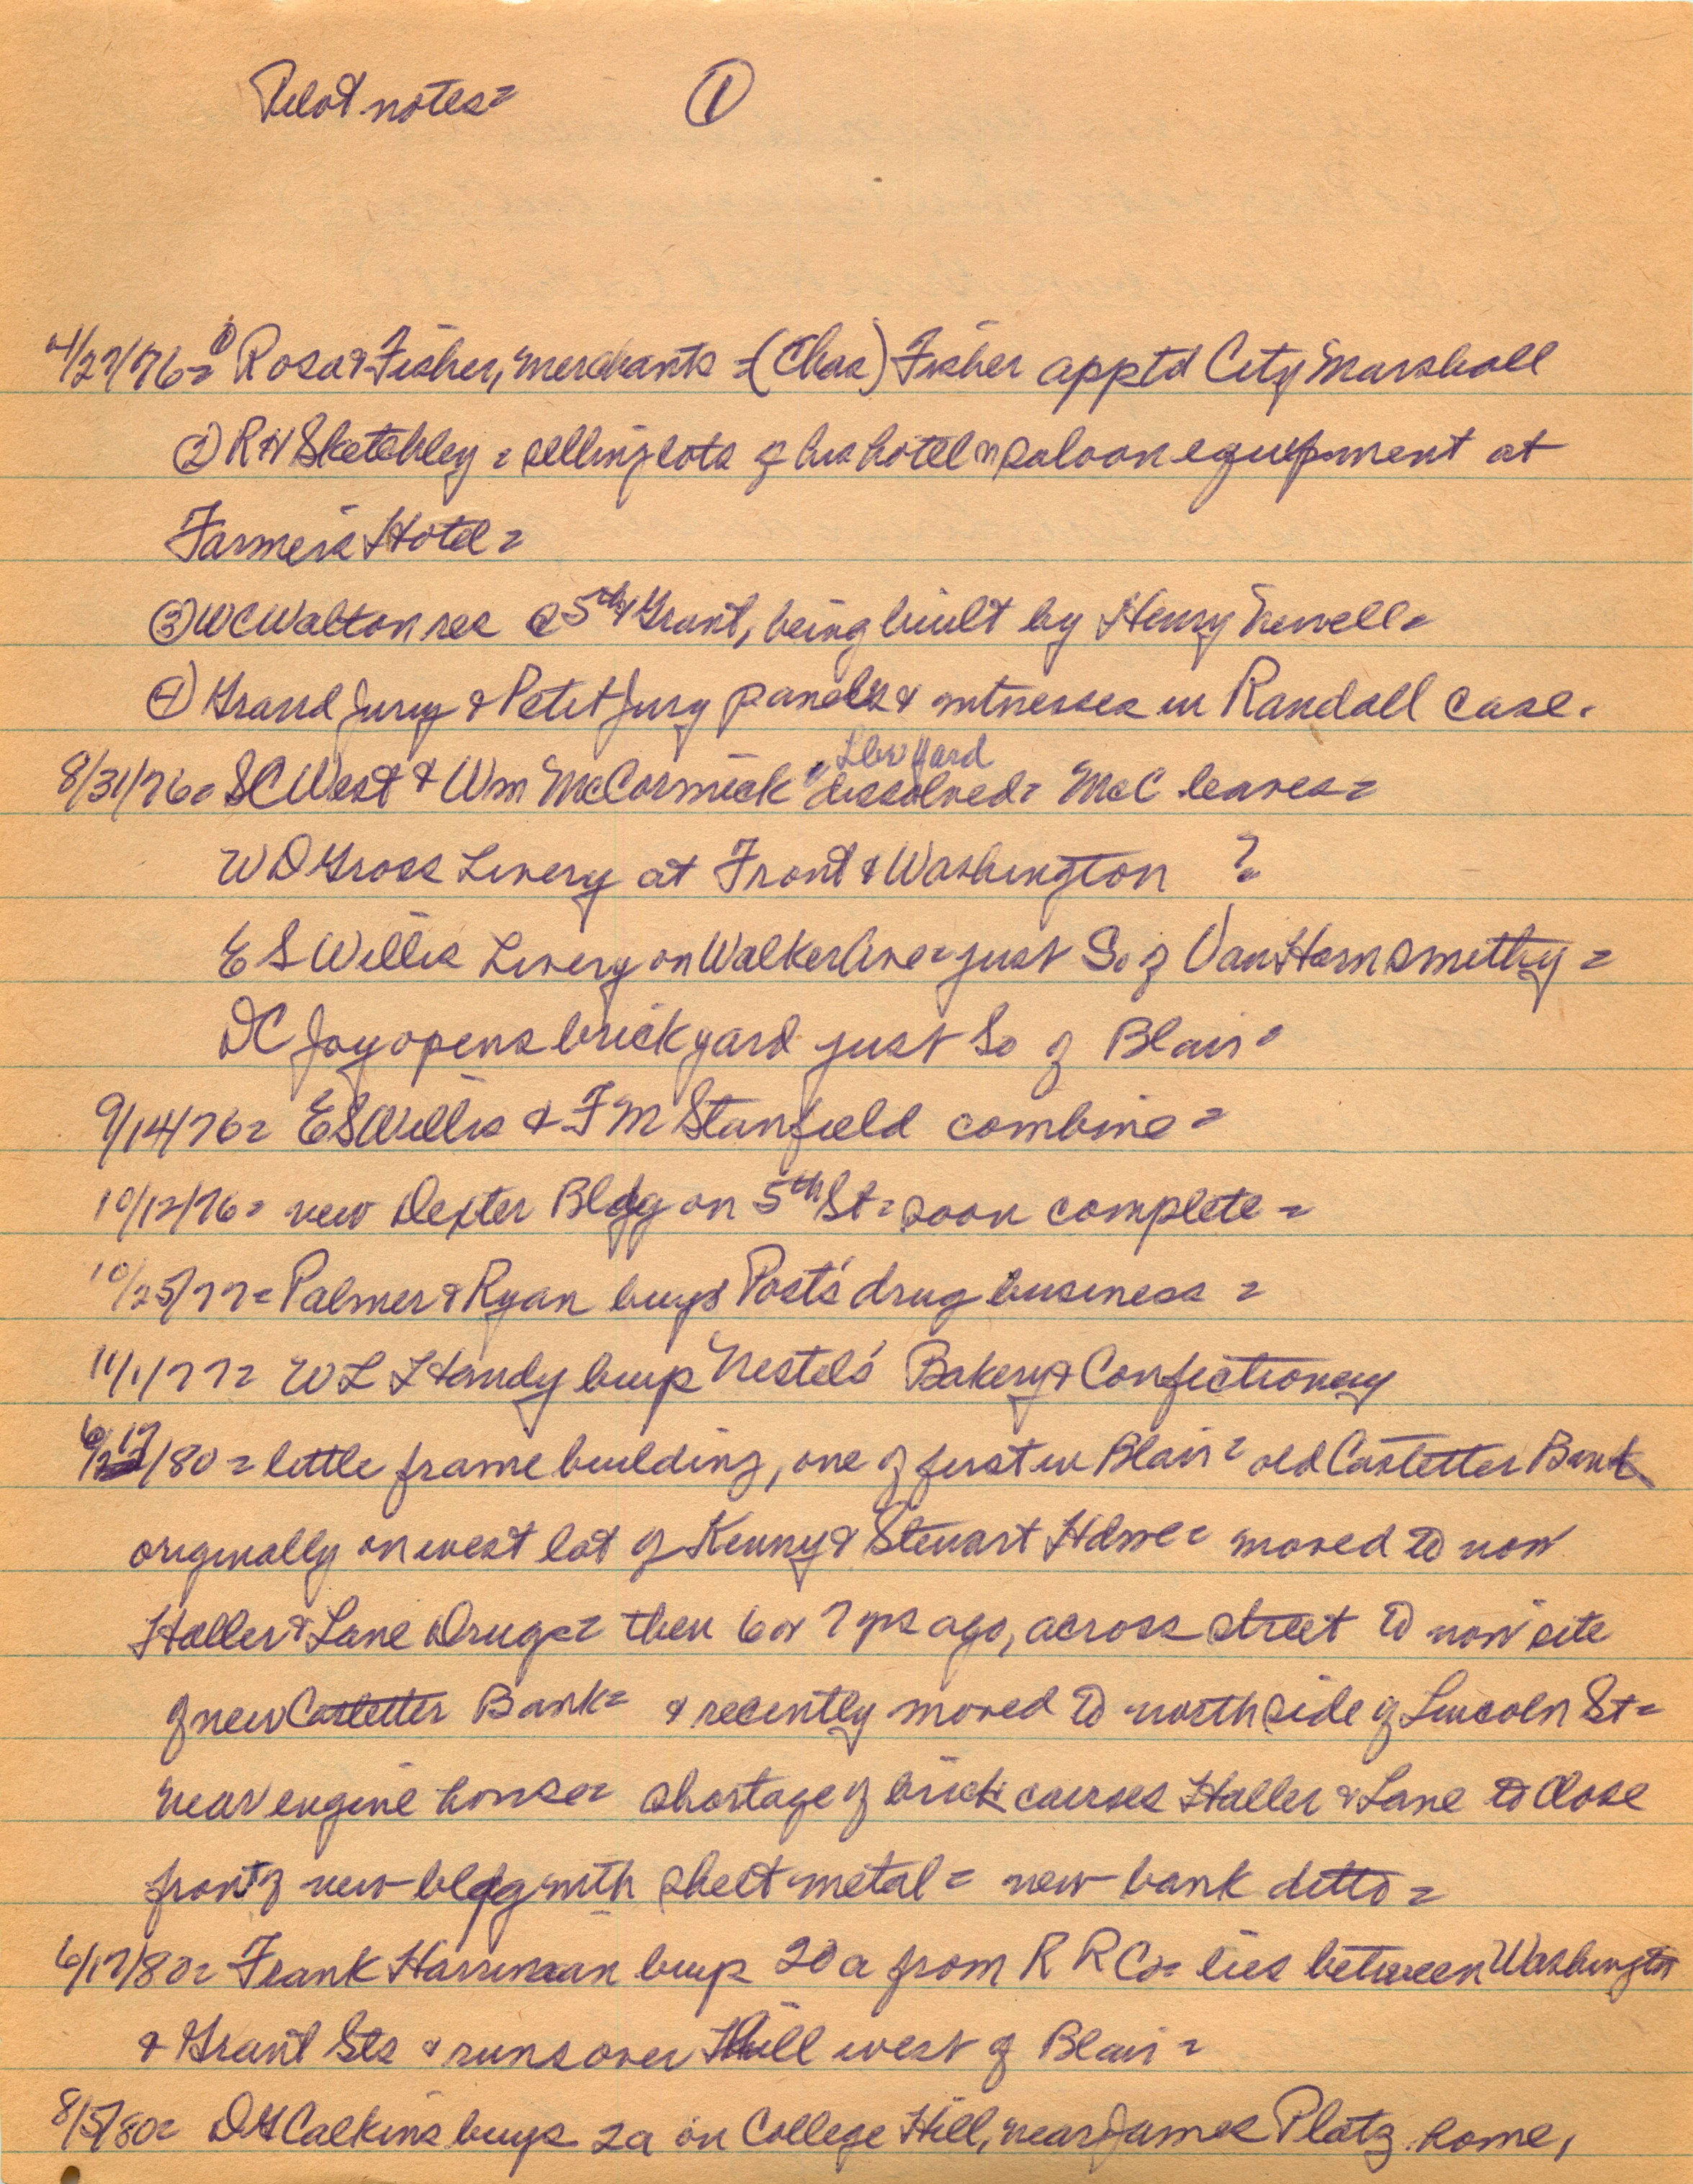 Pilot notes= ①
4/27/76= ① Rosa & Fisher, merchants = (Chas) Fisher apptd City Marshall
② R H Sketchley = selling lots of his hotel n saloon equipment at
Farmers Hotel =
③ WC Walton res @ 5th & Grant, being built by Henry Newell=
④ Grand Jury & Petit Jury panels & witnesses in Randall case.
Lbr Yard
8/31/76= SC West & Wm McCormick " dissolved= McC leaves=
W D Gross Livery at Front & Washington ?
E S Willis Livery on Walker Ave= just So of Van Horn smithy =
DC Jay opens brick yard just So of Blair=
9/14/76= ES Willis & F M Stanfield combine =
10/12/76= new Dexter Bldg on 5th St= soon complete =
10/25/77= Palmer & Ryan buys Post's drug business =
11/1/77= W L Handy buys Nestel's Bakery & Confectionery
6/17/80= little frame building, one of first in Blair= old Castetter Bank
originally on west lot of Kenny & Stewart Hdwe= moved to now
Haller & Lane Drugs= then 6 or 7 yrs ago, across street to now site
of new Castetter Bank= & recently moved to north side of Lincoln St=
near engine house= shortage of brick causes Haller & Lane to close
front of new bldg with sheet metal = new bank ditto =
6/17/80= Frank Harriman buys 20 a from R R Co= lies between Washington
& Grant Sts & runs over Hill west of Blair =
8/5/80= D H Calkins buys 2a on College Hill, near James Platz home,